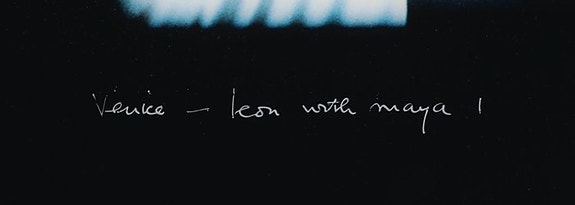 Venice – Leon with maya !